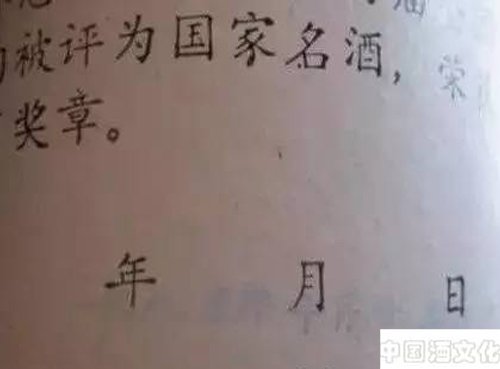 被评为国家名酒，荣
奖章。
年 月 日
中国酒文化